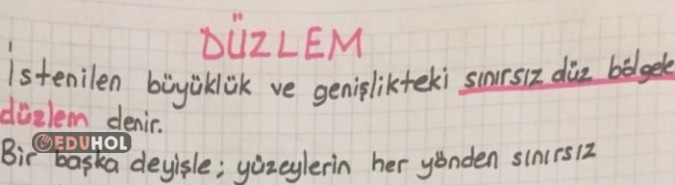 DÜZLEM
İstenilen büyüklük ve genişlikteki sınırsız düz bölgele
düzlem denir.
EDUHOL
Bir başka deyişle; yüzeylerin her yönden sınırsız